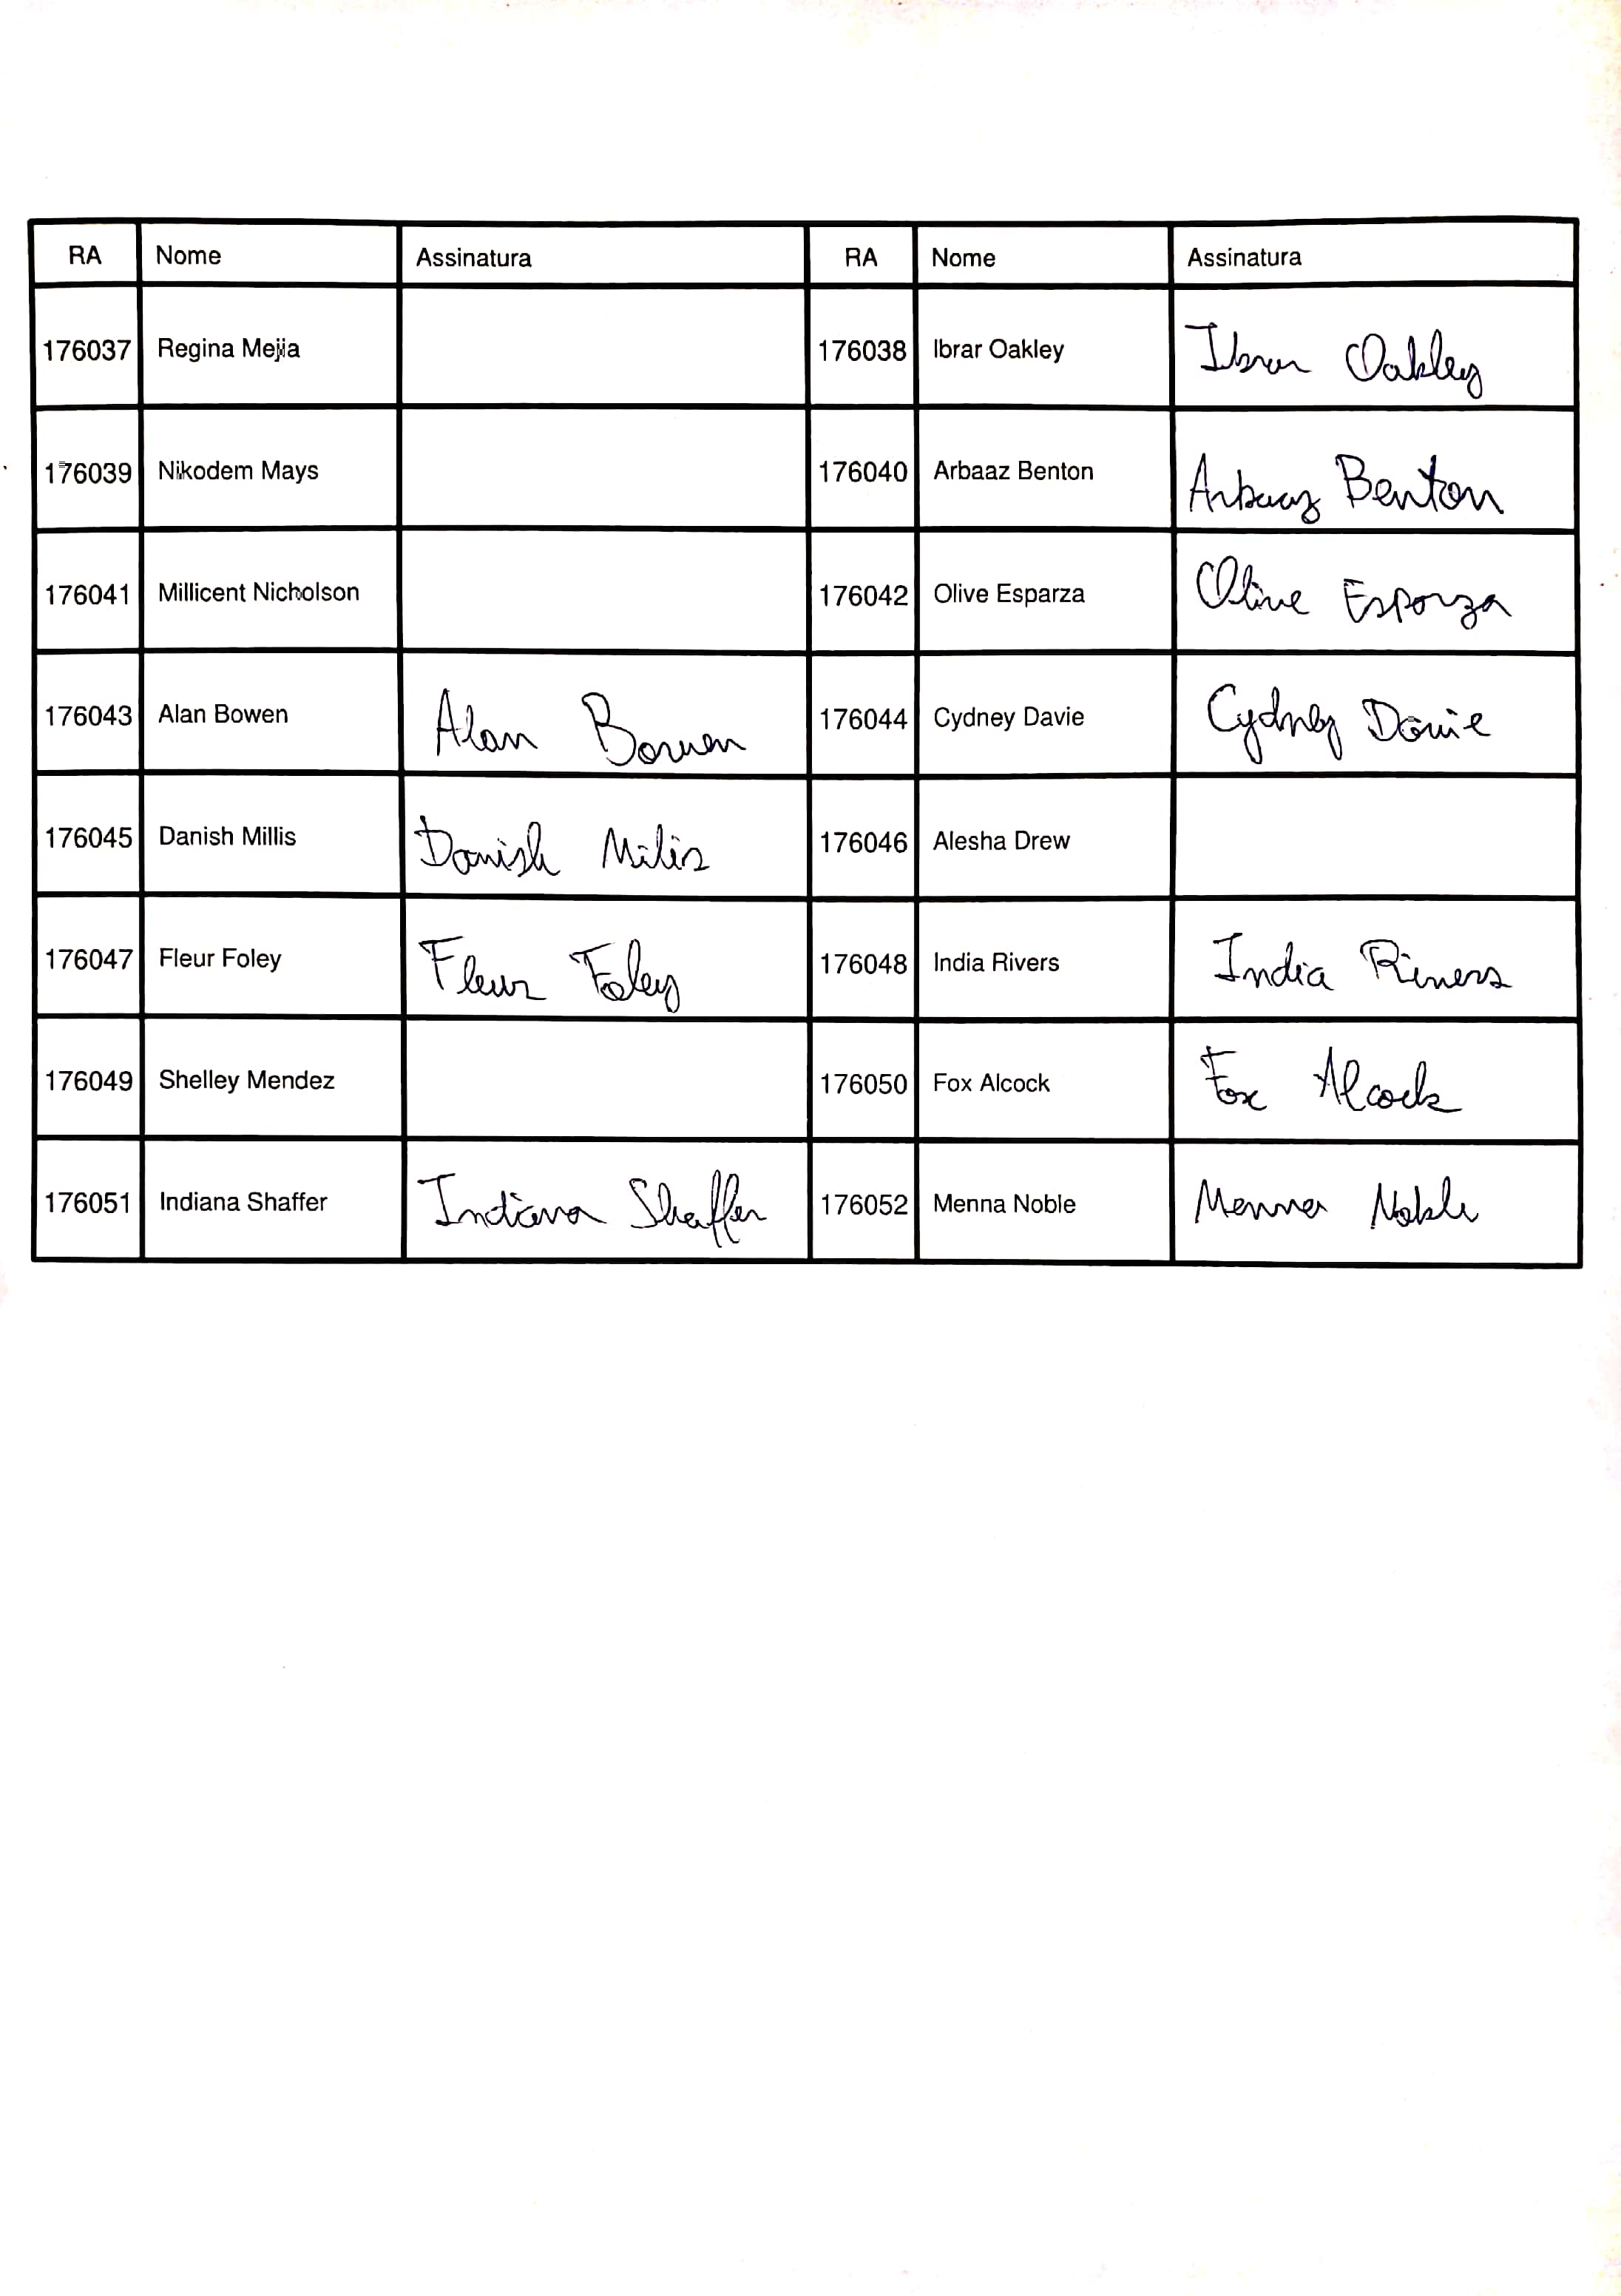 RA Nome Assinatura RA Nome Assinatura
176037 Regina Mejia 176038 Ibrar Oakley Ibrar Oakley
176039 Nikodem Mays 176040 Arbaaz Benton Arbaaz Benton
176041 Millicent Nicholson 176042 Olive Esparza Olive Esparza
176043 Alan Bowen Alan Bowen 176044 Cydney Davie Cydney Davie
176045 Danish Millis Danish Milis 176046 Alesha Drew
176047 Fleur Foley Fleur Foley 176048 India Rivers India Rivers
176049 Shelley Mendez 176050 Fox Alcock Fox Alcock
176051 Indiana Shaffer Indiana Shaffer 176052 Menna Noble Menna Noble